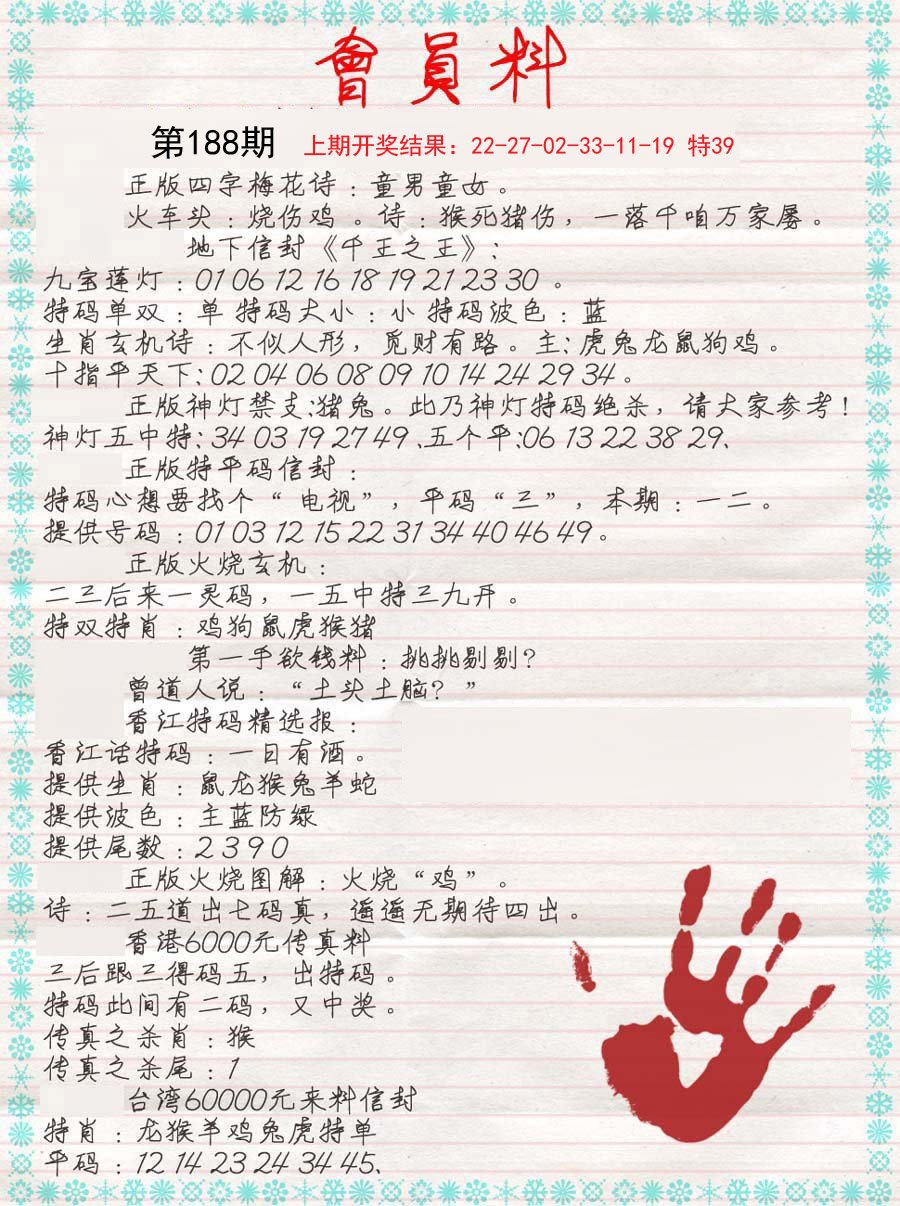 會員料
第188期 上期开奖结果：22-27-02-33-11-19 特39
正版四字梅花诗：童男童女。
火车头：烧伤鸡。诗：猴死猪伤，一落千咱万家屡。
地下信封《千王之王》：
九宝莲灯：01 06 12 16 18 19 21 23 30 。
特码单双：单 特码大小：小 特码波色：蓝
生肖玄机诗：不似人形，觅财有路。主：虎兔龙鼠狗鸡。
十指平天下：02 04 06 08 09 10 14 24 29 34。
正版神灯禁支：猪兔。此乃神灯特码绝杀，请大家参考！
神灯五中特：34 03 19 27 49 、五个平：06 13 22 38 29、
正版特平码信封：
特码心想要找个“ 电视”，平码“三”，本期：一二。
提供号码：01 03 12 15 22 31 34 40 46 49。
正版火烧玄机：
二三后来一灵码，一五中特三九开。
特双特肖：鸡狗鼠虎猴猪
第一手欲钱料：挑挑剔剔？
曾道人说：“土头土脑？”
香江特码精选报：
香江话特码：一日有酒。
提供生肖：鼠龙猴兔羊蛇
提供波色：主蓝防绿
提供尾数：2 3 9 0
正版火烧图解：火烧“鸡”。
诗：二五道出七码真，遥遥无期待四出。
香港6000元传真料
三后跟三得码五，出特码。
特码此间有二码，又中奖。
传真之杀肖：猴
传真之杀尾：1
台湾60000元来料信封
特肖：龙猴羊鸡兔虎特单
平码：12 14 23 24 34 45、